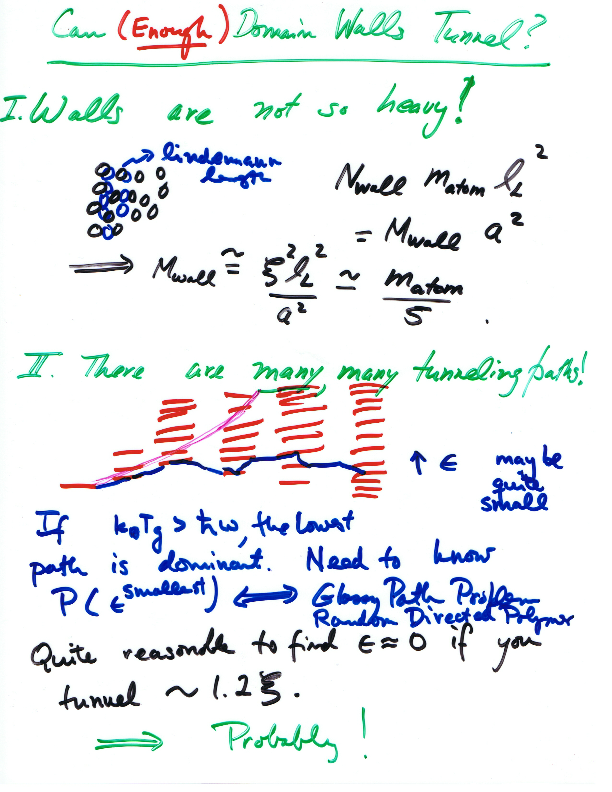 Can (Enough) Domain Walls Tunnel?
I. Walls are not so heavy!
lindemann
length
N_wall m_atom l_L^2
= M_wall a^2
⟹ M_wall ≅ ξ^2 l_L^2 / a^2 ≃ m_atom / 5 .
II. There are many, many tunneling paths!
↑ ϵ may be
quite
small
If k_B T_g > ħω, the lowest
path is dominant. Need to know
P(ϵ^smallest) ⟺ Glassy Path Problem
Random Directed Polymer
Quite reasonable to find ϵ ≈ 0 if you
tunnel ~ 1.2 ξ.
⟹ Probably!